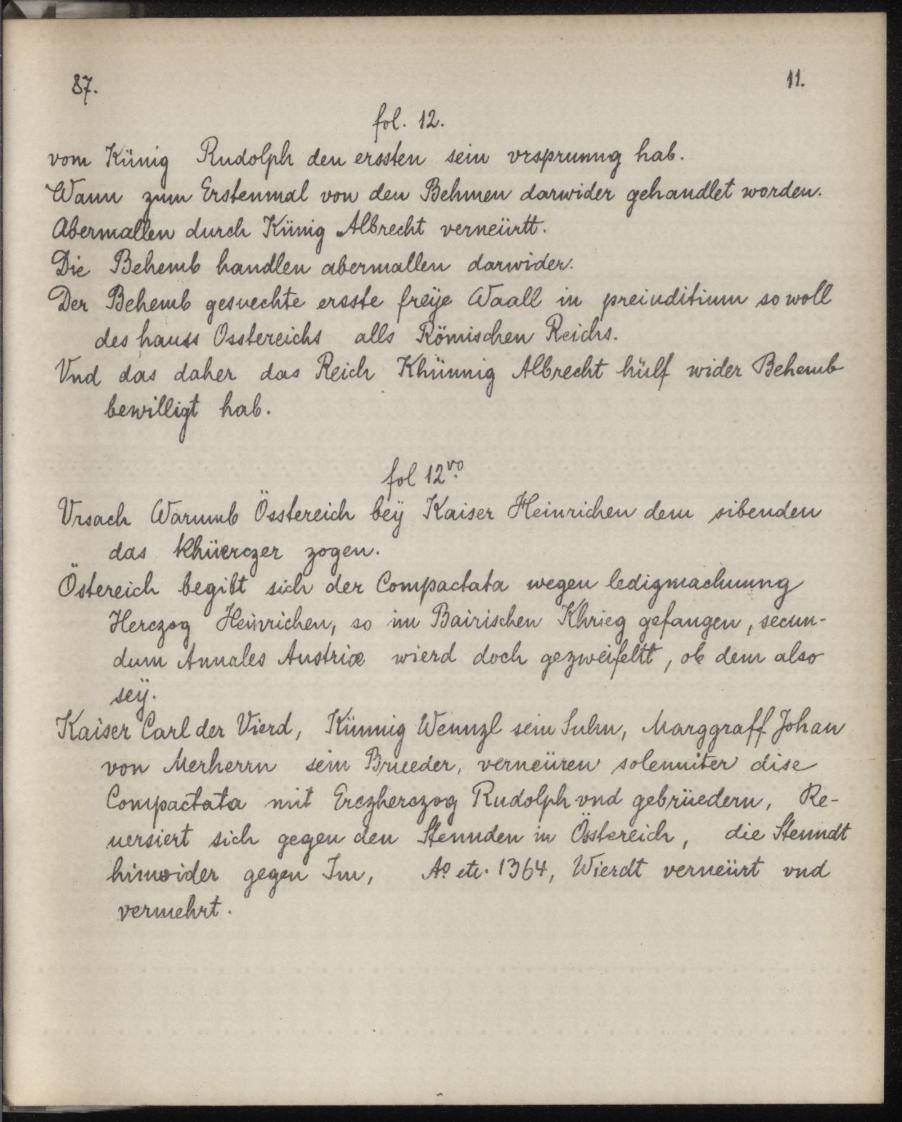 87.
11.
fol. 12.
vom Künig Rudolph den erssten sein vrsprunng hab.
Wann zum Erstenmal von den Behmen darwider gehandlet worden.
Abermallen durch Künig Albrecht verneürtt.
Die Behemb handlen abermallen darwider.
Der Behemb gesuechte ersste freÿe Waall in preiuditium sowoll
des hauss Osstereichs alls Römischen Reichs.
Vnd das daher das Reich Khünnig Albrecht hülf wider Behemb
bewilligt hab.
fol 12vo.
Vrsach Warumb Össtereich beÿ Kaiser Heinrichen dem sibenden
das khüerczer zogen.
Östereich begibt sich der Compactata wegen ledigmachunng
Herczog Heinrichen, so im Bairischen Khrieg gefangen, secun-
dum Annales Austriæ wierd doch gezweifeltt, ob dem also
seÿ.
Kaiser Carl der Vierd, Künnig Wennzl sein Suhn, Marggraff Johan
von Merherrn sein Brueder, verneüren solenniter dise
Compactata mit Erczherczog Rudolph vnd gebrüedern, Re-
uersiert sich gegen den Stennden in Östereich, die Stenndt
hinwider gegen Im, Ao etc. 1364, Wierdt verneürt vnd
vermehrt.